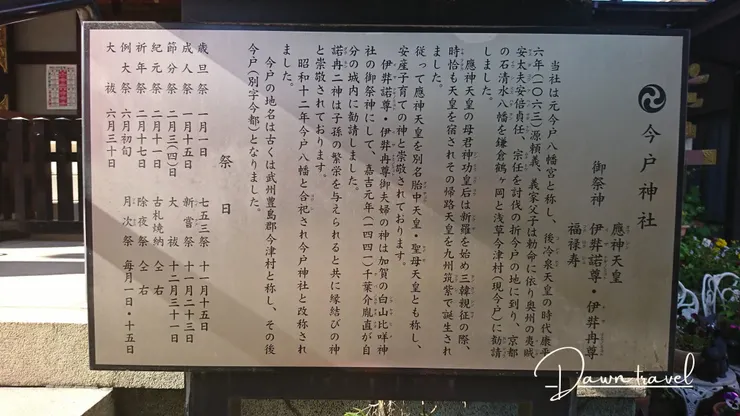 今戸神社
御祭神
應神天皇
伊弉諾尊・伊弉冉尊
福禄寿
当社は元今戸八幡宮と称し、後冷泉天皇の時代康平
六年(一〇六三)源頼義、義家父子は勅命に依り奥州の夷賊
安太夫安倍貞任、宗任を討伐の折今戸の地に到り、京都
の石清水八幡を鎌倉鶴ヶ岡と浅草今津村(現今戸)に勧請
しました。
應神天皇の母君神功皇后は新羅を始め三韓親征の際、
時恰も天皇を宿されその帰路天皇を九州筑紫で誕生され
従って應神天皇を別名胎中天皇・聖母天皇とも称し、
安産子育ての神と崇敬されております。
伊弉諾尊・伊弉冉尊御夫婦の神は加賀の白山比咩神
社の御祭神にして、嘉吉元年(一四四一)千葉介胤直が自
分の城内に勧請しました。
諾冉二神は子孫の繁栄を与えられると共に縁結びの神
と崇敬されております。
昭和十二年今戸八幡と合祀され今戸神社と改称され
ました。
今戸の地名は古くは武州豊島郡今津村と称し、その後
今戸(別字今都)となりました。
祭日
歳旦祭 一月一日 七五三祭 十一月十五日
成人祭 一月十五日 新嘗祭 十一月二十三日
節分祭 二月三(四)日 大祓 十二月三十一日
紀元祭 二月十一日 古札焼納 仝右
祈年祭 二月十七日 除夜祭 仝右
例大祭 六月初旬 月次祭 毎月一日・十五日
大祓 六月三十日
Dawn travel